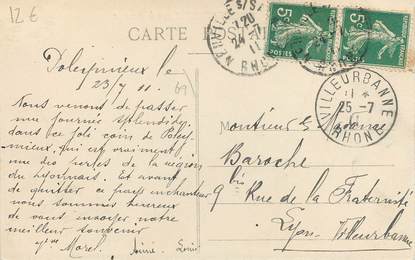 12 €
CARTE POSTALE
69
Poleymieux le
23/7 11.
Nous venons de passer
une journée splendide
dans ce joli coin de Poley-
mieux, qui est vraiment
une des perles de la région
du Lyonnais. Et avant
de quitter ce pays enchanteur
nous sommes heureux
de vous envoyer notre
meilleur souvenir
Morel. Aimé. Louis
Monsieur
Baroche
9 bis Rue de la Fraternité
Lyon-Villeurbanne
5c
POSTES
5c
POSTES
NEUVILLE S/SAONE
24 -7
11
RHONE
VILLEURBANNE
25 -7
11
RHONE